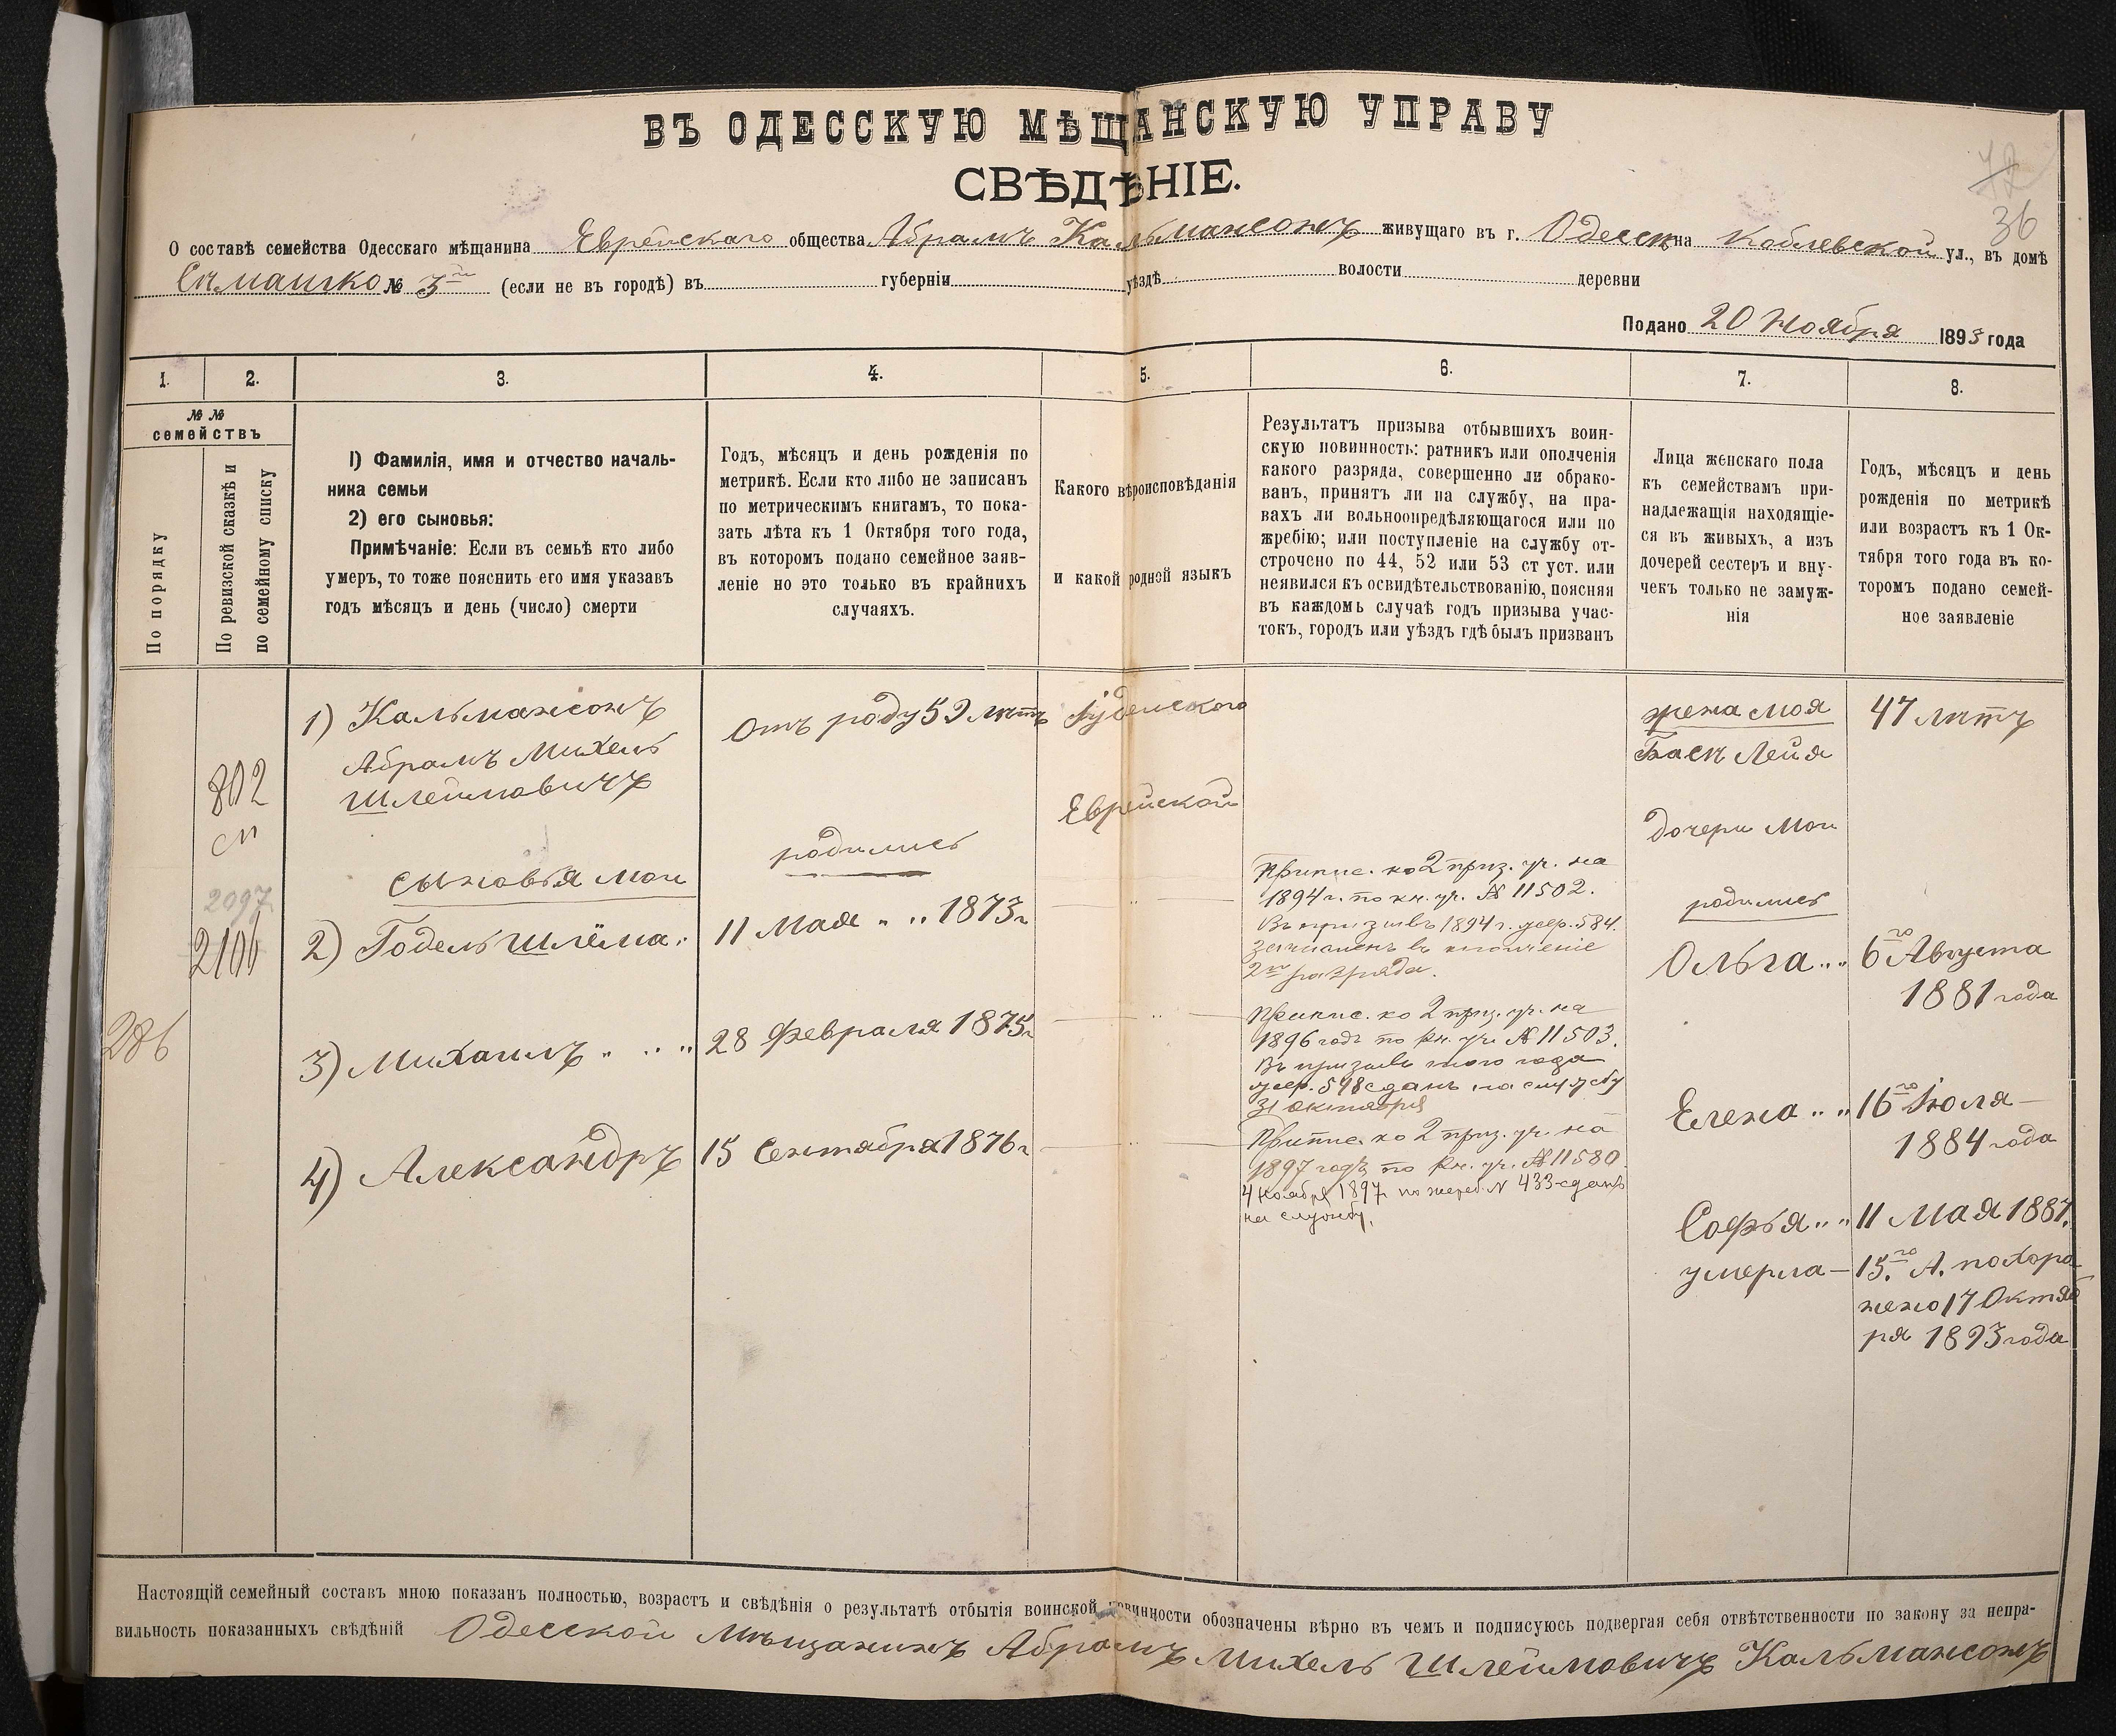 ВЪ ОДЕССКУЮ МѢЩАНСКУЮ УПРАВУ
СВѢДѢНІЕ.
72
36
О составѣ семейства Одесскаго мѣщанина Еврейскаго общества Абрамъ Кальмансонъ живущаго въ г. Одессѣ на Коблевской ул., въ домѣ
Сѣмашко № 3й (если не въ городѣ) въ губерніи уѣздѣ волости деревни
Подано 20 Ноября 1893 года
1. 2. 3. 4. 5. 6. 7. 8.
№ №
семействъ
По порядку
По ревизской сказкѣ и
по семейному списку
I) Фамилія, имя и отчество началь-
ника семьи
2) его сыновья:
Примѣчаніе: Если въ семьѣ кто либо
умеръ, то тоже пояснить его имя указавъ
годъ мѣсяцъ и день (число) смерти
Годъ, мѣсяцъ и день рожденія по
метрикѣ. Если кто либо не записанъ
по метрическимъ книгамъ, то пока-
зать лѣта къ 1 Октября того года,
въ которомъ подано семейное заяв-
леніе но это только въ крайнихъ
случаяхъ.
Какого вѣроисповѣданія
и какой родной языкъ
Результатъ призыва отбывшихъ воин-
скую повинность: ратникъ или ополченія
какого разряда, совершенно ли обрако-
ванъ, принятъ ли на службу, на пра-
вахъ ли вольноопредѣляющагося или по
жребію; или поступленіе на службу от-
строчено по 44, 52 или 53 ст уст. или
неявился къ освидѣтельствованію, поясняя
въ каждомъ случаѣ годъ призыва учас-
токъ, городъ или уѣздъ гдѣ былъ призванъ
Лица женскаго пола
къ семействамъ при-
надлежащія находящіе-
ся въ живыхъ, а изъ
дочерей сестеръ и вну-
чекъ только не замуж-
нія
Годъ, мѣсяцъ и день
рожденія по метрикѣ
или возрастъ къ 1 Ок-
тября того года въ ко-
торомъ подано семей-
ное заявленіе
286
802
см
2097
2106
1) Кальмансонъ
Абрамъ Михель
Шлеймовичъ
Отъ роду 59 лѣтъ
Іудейскаго
Еврейской
жена моя
Бася Лейя
47 лѣтъ
сыновья мои
родились
дочери мои
родились
2) Годель Шлёма
11 Мая 1873 г
Припис. ко 2 приз. уч. на
1894 г. по кн. уч. № 11502.
Въ призывъ 1894 г. жер. 584.
зачисленъ въ ополченіе
2го разряда.
Ольга 6го Августа
1881 года
3) Михаилъ
28 Февраля 1875 г
Припис. ко 2 приз. уч. на
1896 годъ по кн. уч. № 11503.
Въ призывъ того года
жер. 598 сданъ на службу
31 октября
Елена 16го Іюля
1884 года
4) Александръ
15 Сентября 1876 г
Припис. ко 2 приз. уч. на
1897 годъ по кн. уч. № 11580
4 ноября 1897 г по жереб. № 433 сданъ
на службу.
Софья 11 Мая 1887.
умерла 15.го А. похоро
нено 17 Октяб
ря 1893 года
Настоящій семейный составъ мною показанъ полностью, возрастъ и свѣдѣнія о результатѣ отбытія воинской повинности обозначены вѣрно въ чемъ и подписуюсь подвергая себя отвѣтственности по закону за непра-
вильность показанныхъ свѣдѣній Одесской Мѣщанинъ Абрамъ Михель Шлеймовичъ Кальмансонъ